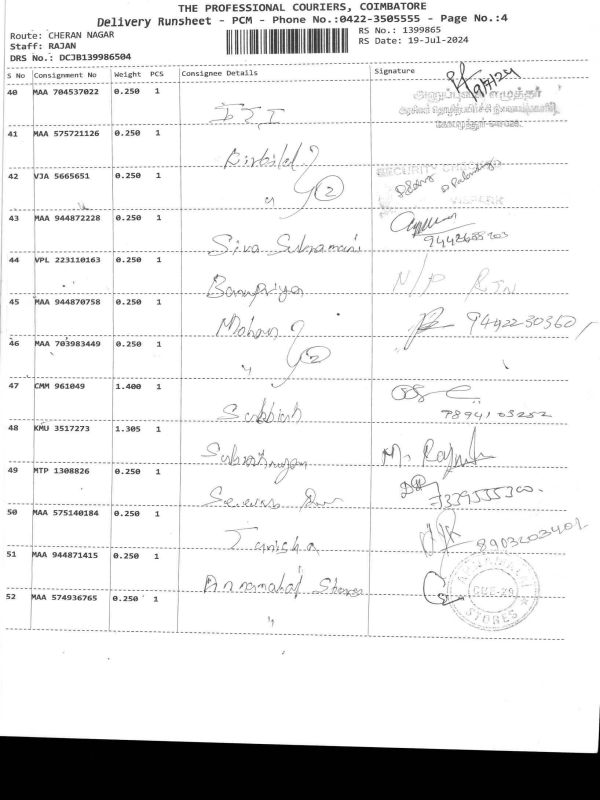 THE PROFESSIONAL COURIERS, COIMBATORE
Delivery Runsheet - PCM - Phone No.:0422-3505555 - Page No.:4
Route: CHERAN NAGAR
RS No.: 1399865
Staff: RAJAN
RS Date: 19-Jul-2024
DRS No.: DCJB139986504
S No Consignment No Weight PCS Consignee Details Signature
40 MAA 704537022 0.250 1 I T I
41 MAA 575721126 0.250 1
42 VJA 5665651 0.250 1 " 2
SECURITY
43 MAA 944872228 0.250 1 Siva Subramani
44 VPL 223110163 0.250 1 Banupriya N/P RTN
45 MAA 944870758 0.250 1 Mohan 9442230360/
46 MAA 703983449 0.250 1 " 2
47 CMM 961049 1.400 1 Subbiah
48 KMU 3517273 1.305 1 M.
49 MTP 1308826 0.250 1 7339555300
50 MAA 575140184 0.250 1 Tanisha 8903203401
51 MAA 944871415 0.250 1 Annamalai Stores
52 MAA 574936765 0.250 1 "
STORES